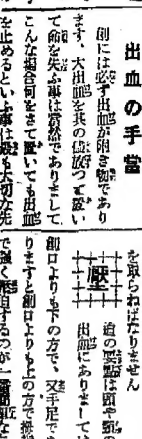 出血の手當
創には必ず出血が附き物であり
ます、大出血を其の儘放つて置い
て命を失ふ事は當然でありまして
こんな場合何をさて置いても出血
を止めるといふ事は最も大切な先
を取らねばなりません
壓
迫の要點は頭や頸の
出血にありましては
創口よりも下の方で、又手足であ
りますと創口よりも上の方で
で強く壓迫するのが一番